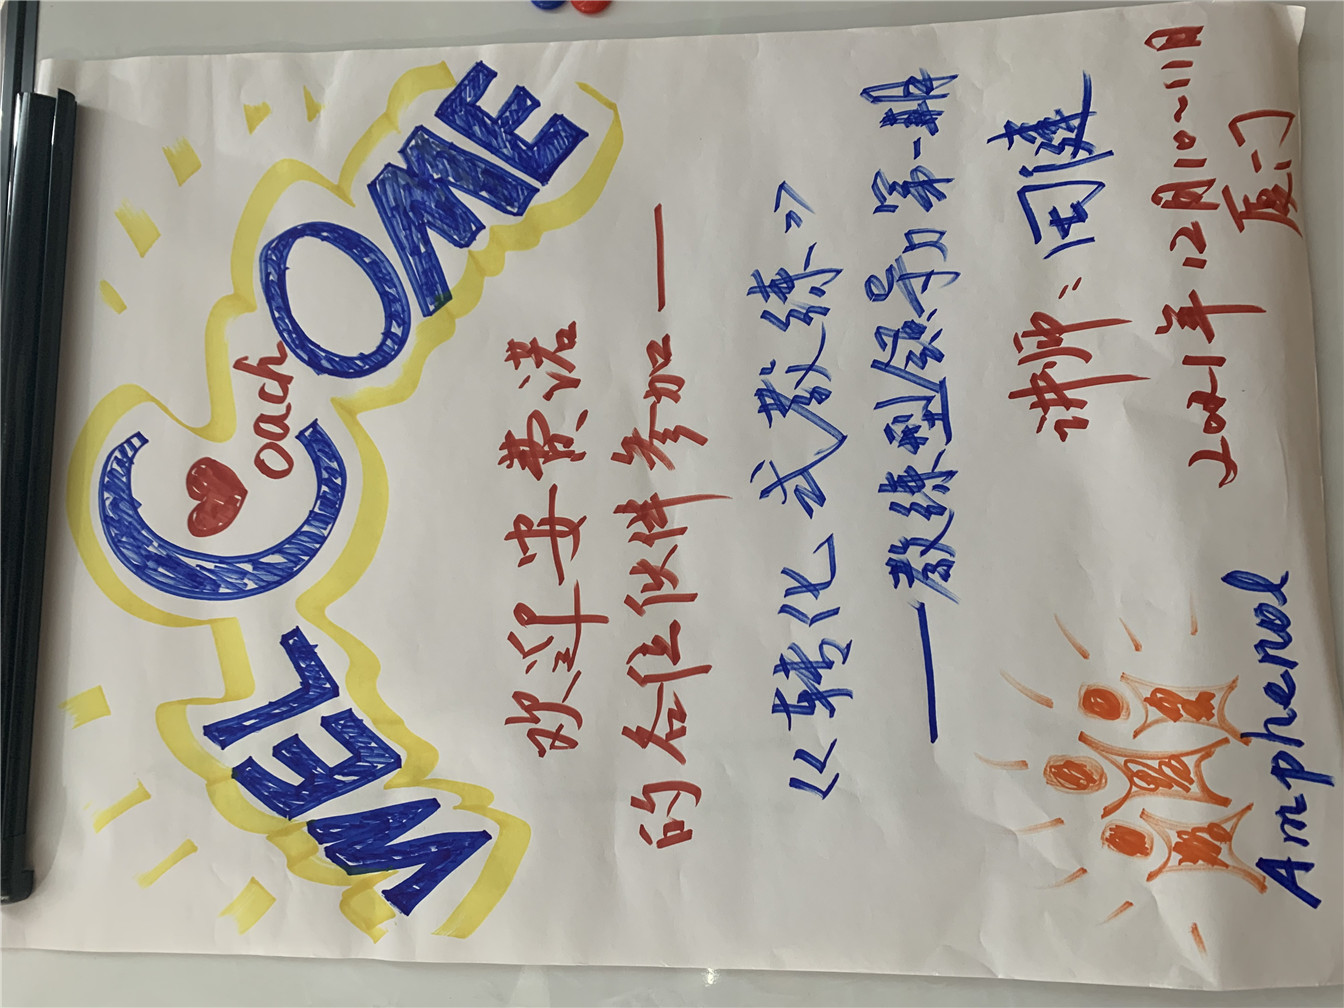 WELCOME
oach
欢迎安费诺
的各位伙伴参加——
《转化式教练》
——教练型领导力第一期
讲师：
2021年12月10~11日
厦门
Amphenol